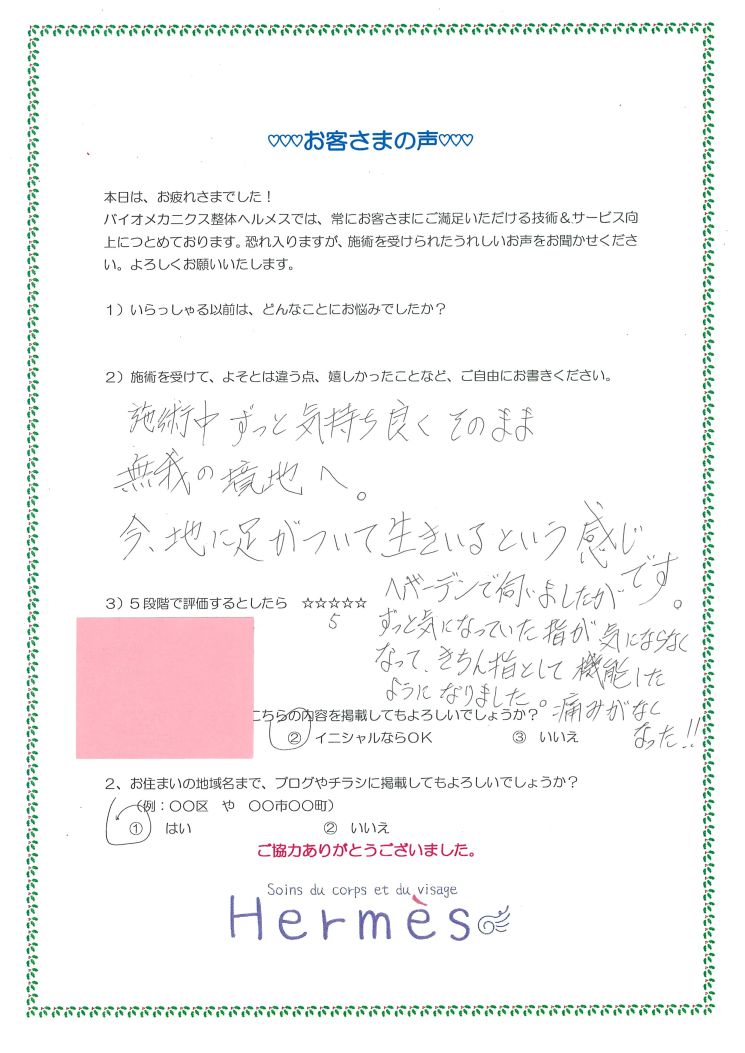 ♡♡♡お客さまの声♡♡♡
本日は、お疲れさまでした！
バイオメカニクス整体ヘルメスでは、常にお客さまにご満足いただける技術＆サービス向
上につとめております。恐れ入りますが、施術を受けられたうれしいお声をお聞かせくださ
い。よろしくお願いいたします。
１）いらっしゃる以前は、どんなことにお悩みでしたか？
２）施術を受けて、よそとは違う点、嬉しかったことなど、ご自由にお書きください。
施術中 ずっと 気持ち良く そのまま
無我の境地へ。
今、地に足がついて生きいるという感じ
です。
３）５段階で評価するとしたら　☆☆☆☆☆
5
ヘバーデンで伺いましたが
ずっと気になっていた指が気にならなく
なって、きちん指として機能した
ようになりました。痛みがなく
なった!!
こちらの内容を掲載してもよろしいでしょうか？
② イニシャルならＯＫ　③ いいえ
２、お住まいの地域名まで、ブログやチラシに掲載してもよろしいでしょうか？
（例：〇〇区　や　〇〇市〇〇町）
① はい　② いいえ
ご協力ありがとうございました。
Soins du corps et du visage
Hermès